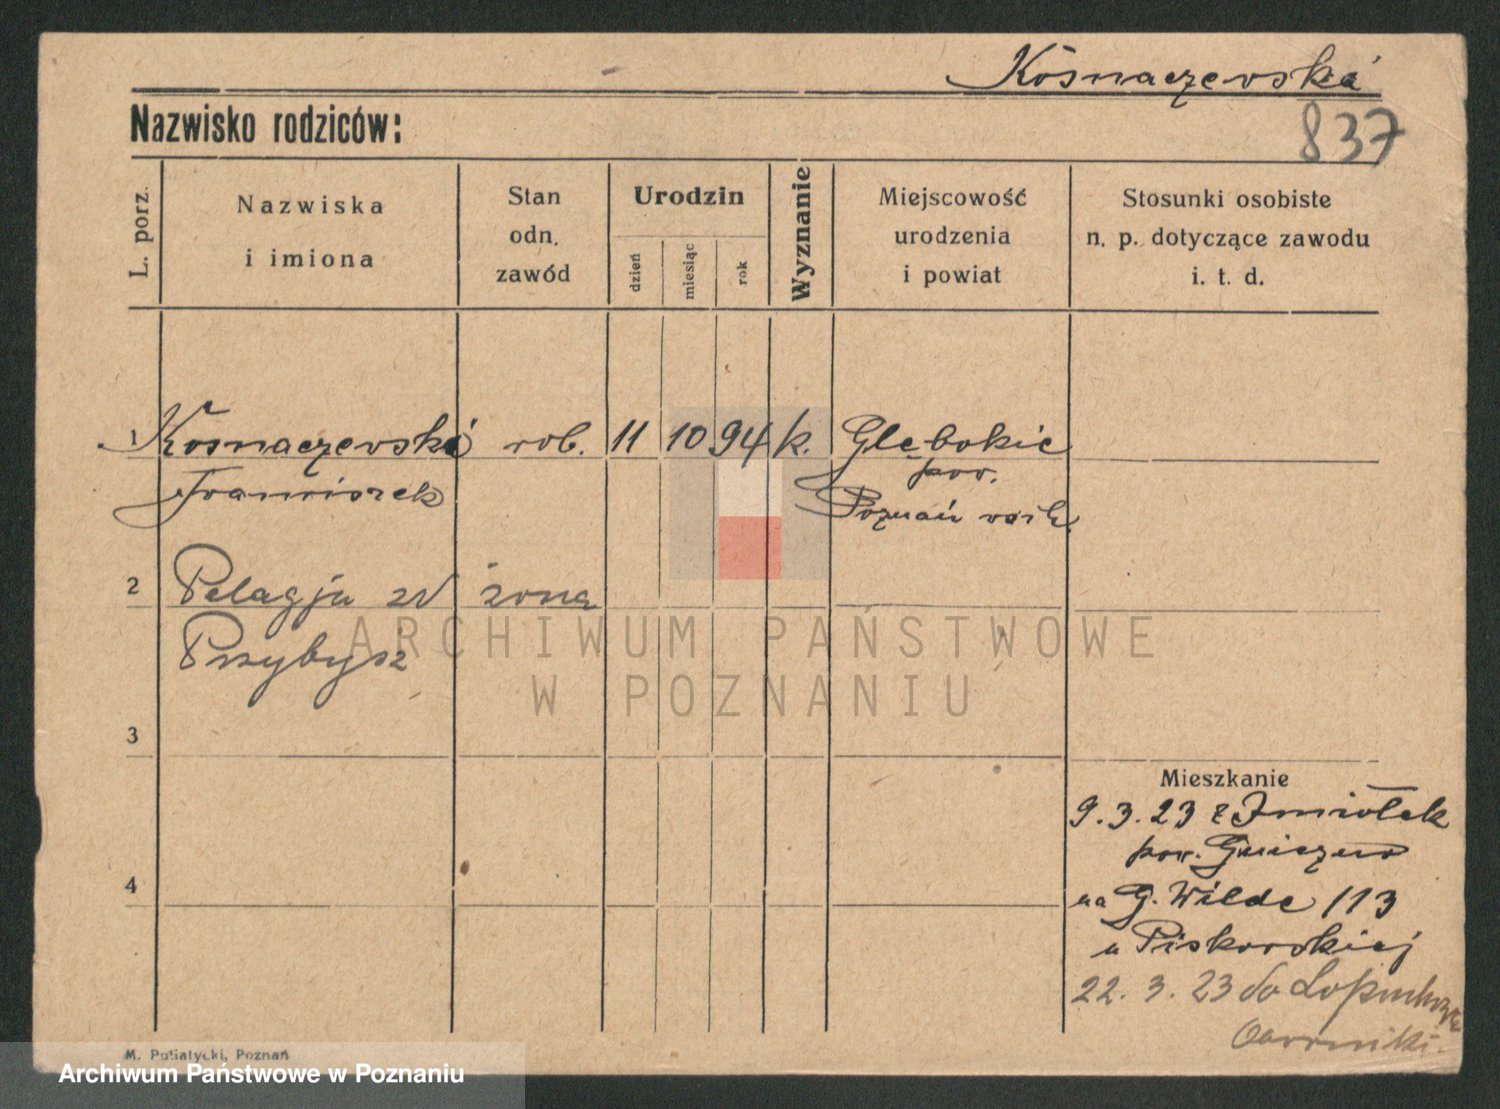 Kośnaczewski
837
Nazwisko rodziców:
L. porz.
Nazwiska
i imiona
Stan
odn.
zawód
Urodzin
dzień
miesiąc
rok
Wyznanie
Miejscowość
urodzenia
i powiat
Stosunki osobiste
n. p. dotyczące zawodu
i. t. d.
1 Kosnaczewski rob. 11 10 94 k. Głębokie
Franciszek
pow.
Poznań wsch.
2 Pelagja zd żona
Przybysz
ARCHIWUM PAŃSTWOWE
W POZNANIU
3
Mieszkanie
9.3.23 z
pow. Gniezno
4
na G. Wilde 113
u Piskorskiej
22. 3. 23 do
Oborniki.
M. Putiatycki, Poznań
Archiwum Państwowe w Poznaniu